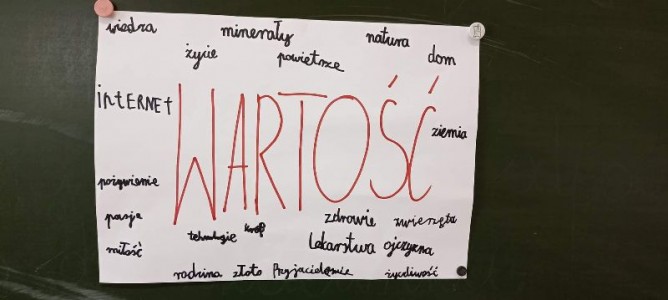 wiedza minerały natura
życie powietrze dom
INTERNET WARTOŚĆ ziemia
pożywienie
pasja zdrowie zwierzęta
technologie
miłość lekarstwa ojczyzna
rodzina złoto Przyjaciele życzliwość